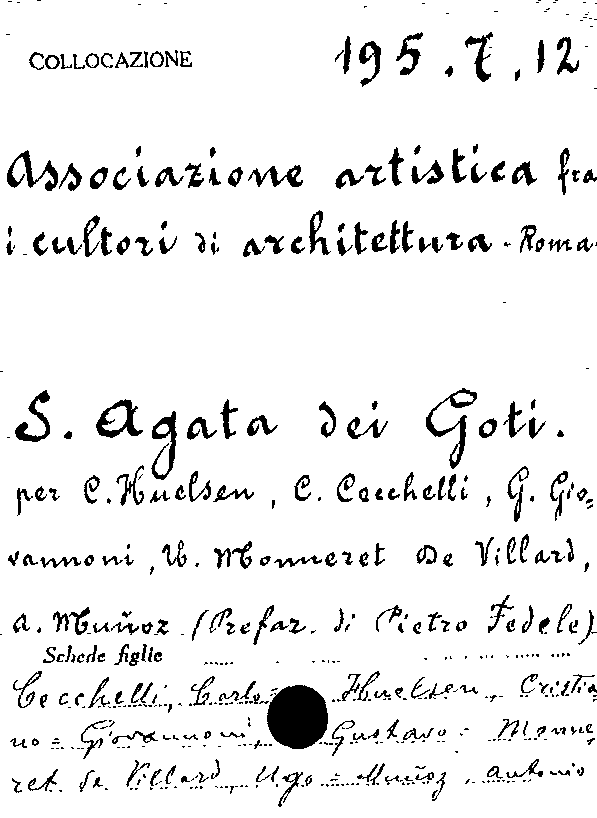 COLLOCAZIONE 195.7.12
Associazione artistica fra
i cultori di architettura - Roma -
S. Agata dei Goti.
per C. Huelsen, C. Cecchelli, G. Gio=
vannoni, U. Monneret De Villard,
A. Muñoz (Prefaz. di Pietro Fedele)
Schede figlie
Cecchelli, Carlo = Huelsen, Cristia
no = Giovannoni, Gustavo = Monne
ret de Villard, Ugo = Muñoz, Antonio